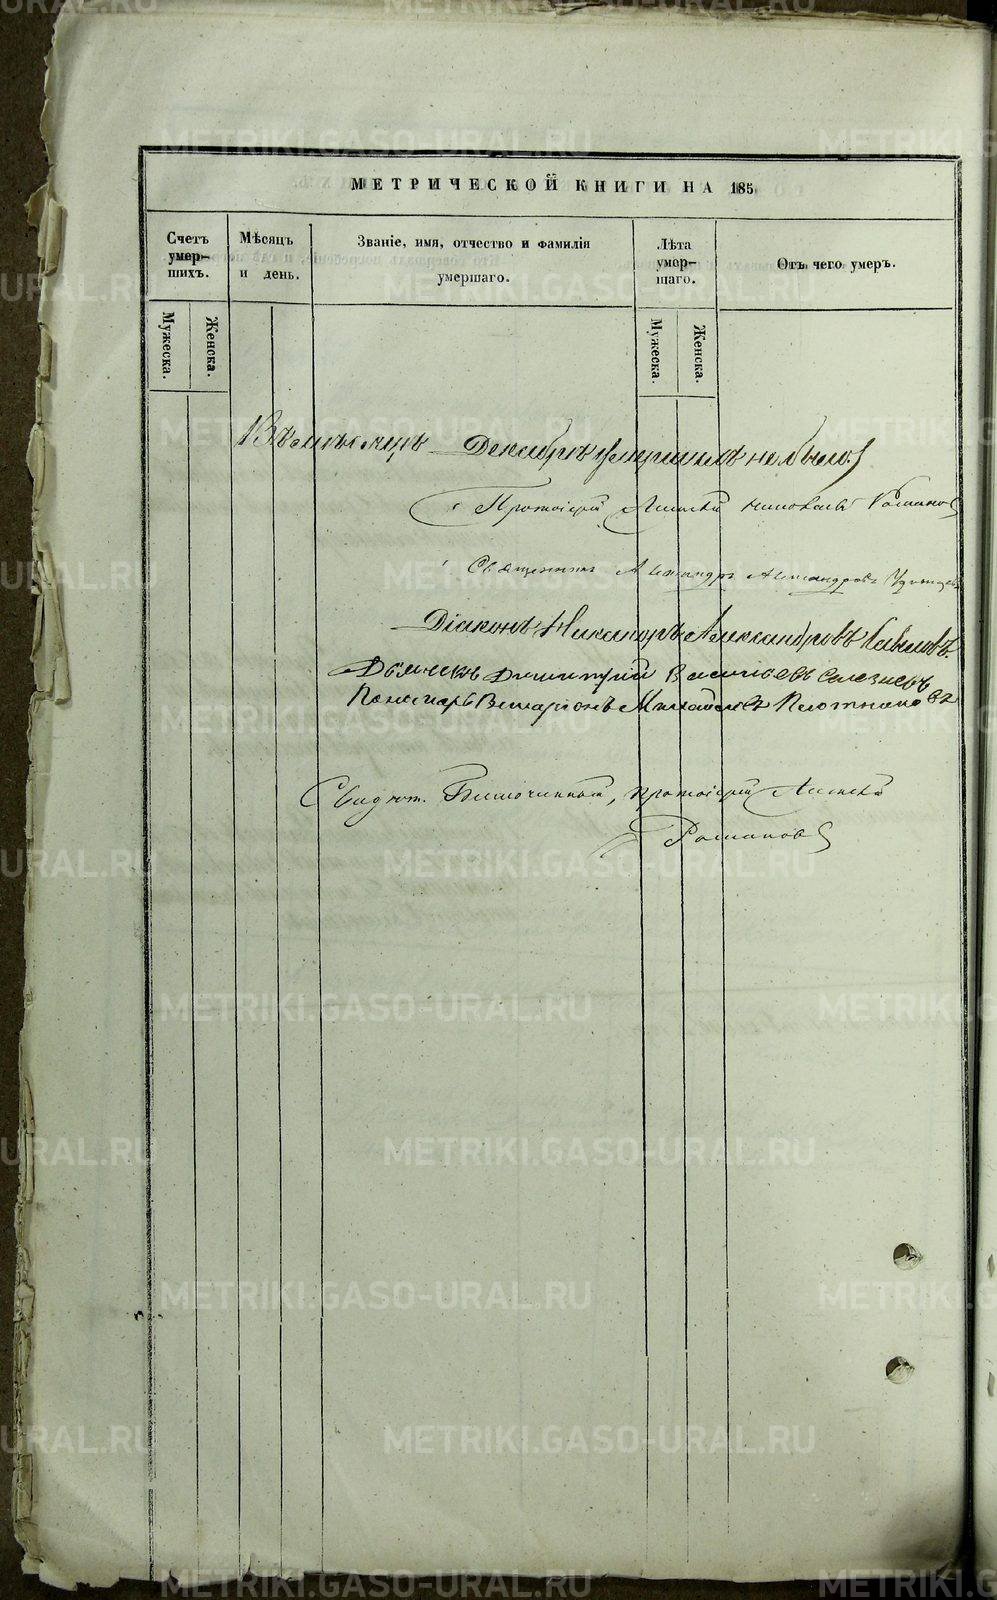 METRIKI.GASO-URAL.RU
МЕТРИЧЕСКОЙ КНИГИ НА 185
Счетъ умер-шихъ.
Мѣсяцъ и день.
Званіе, имя, отчество и фамилія умершаго.
Лѣта умер-шаго.
Отъ чего умеръ.
Мужеска.
Женска.
Мужеска.
Женска.
Декабрѣ умершихъ не было.
Протоіерей Алексѣй Романовъ
Священникъ Александръ Александровъ
Діаконъ Никаноръ Александровъ
Дьячекъ Димитрій Васильевъ Селезневъ
Пономарь Виссаріонъ Михайловъ Плотниковъ
Свидѣт. Благочинный, протоіерей Алексѣй
Романовъ